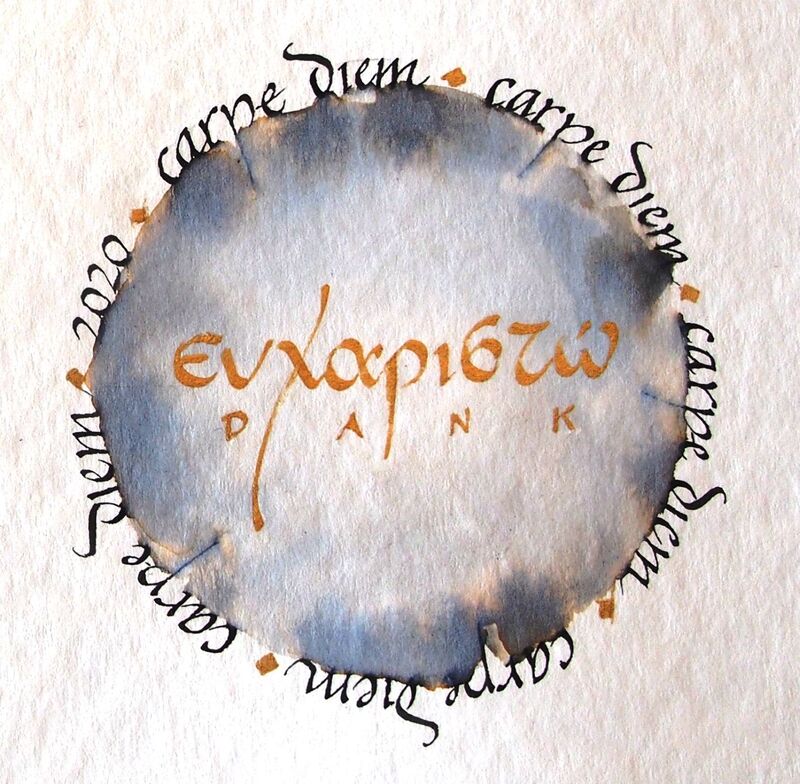 carpe diem
carpe diem
carpe diem
carpe diem
carpe diem
2020
ευχαριστώ
DANK